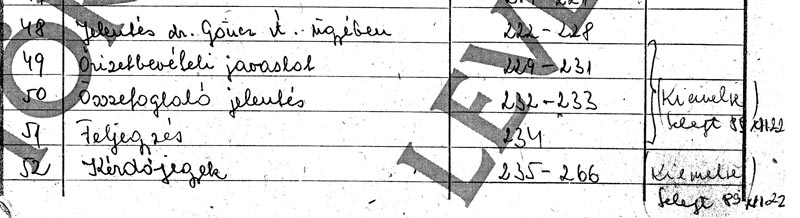 48 Jelentés dr. Göncz Á. ügyében 222-228
49 Őrizetbevételi javaslat 229-231
50 Összefoglaló jelentés 232-233 (Kiemelt
51 Feljegyzés 234 89 XII.22
52 Kérdőjegyek 235-266 (Kiemelt)
89 XII.22
LEVÉ